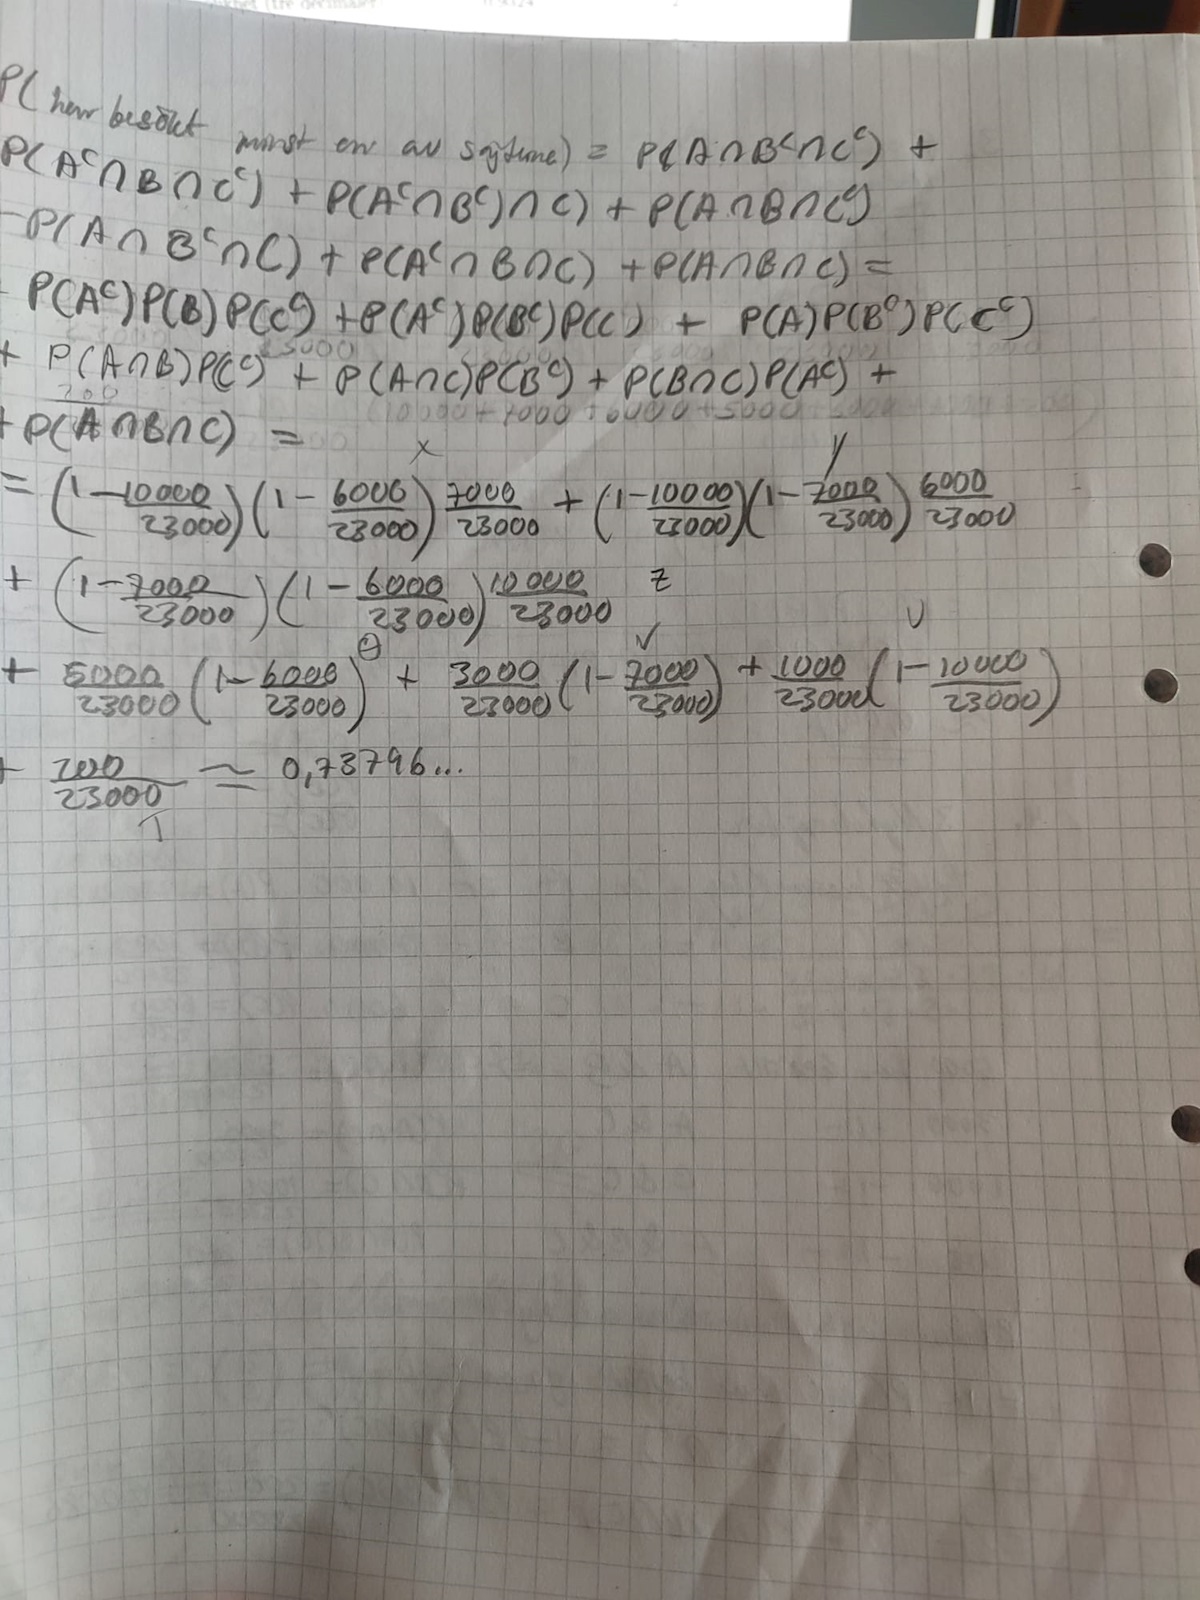 P(har besökt minst en av sajterna) = P(A∩B^c∩C^c) +
P(A^c∩B∩C^c) + P(A^c∩B^c)∩C) + P(A∩B∩C^c)
-P(A∩B^c∩C) + P(A^c∩B∩C) + P(A∩B∩C) =
P(A^c)P(B)P(C^c) + P(A^c)P(B^c)P(C) + P(A)P(B^c)P(C^c)
+ P(A∩B)P(C^c) + P(A∩C)P(B^c) + P(B∩C)P(A^c) +
+P(A∩B∩C) =
x y
= (1-10000/23000)(1-6000/23000) 7000/23000 + (1-10000/23000)(1-7000/23000) 6000/23000
+ (1-7000/23000)(1-6000/23000) 10000/23000 z
θ V U
+ 5000/23000 (1-6000/23000) + 3000/23000 (1-7000/23000) + 1000/23000 (1-10000/23000)
+ 200/23000 ≃ 0,73796...
T